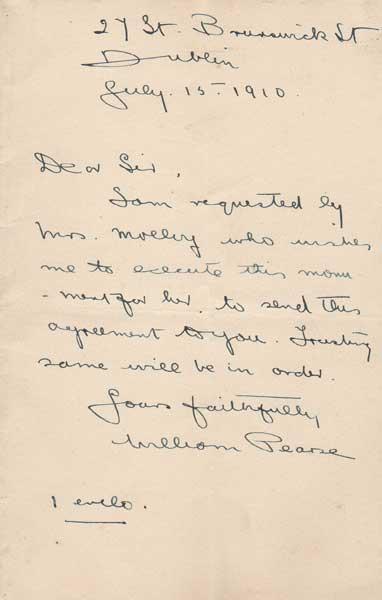 27 Gt. Brunswick St
Dublin
July. 15. 1910.
Dear Sir,
I am requested by
Mrs. Molloy who wishes
me to execute this monu
-ment for her, to send this
agreement to you. Trusting
same will be in order.
Yours faithfully
William Pearse
1 enclo.